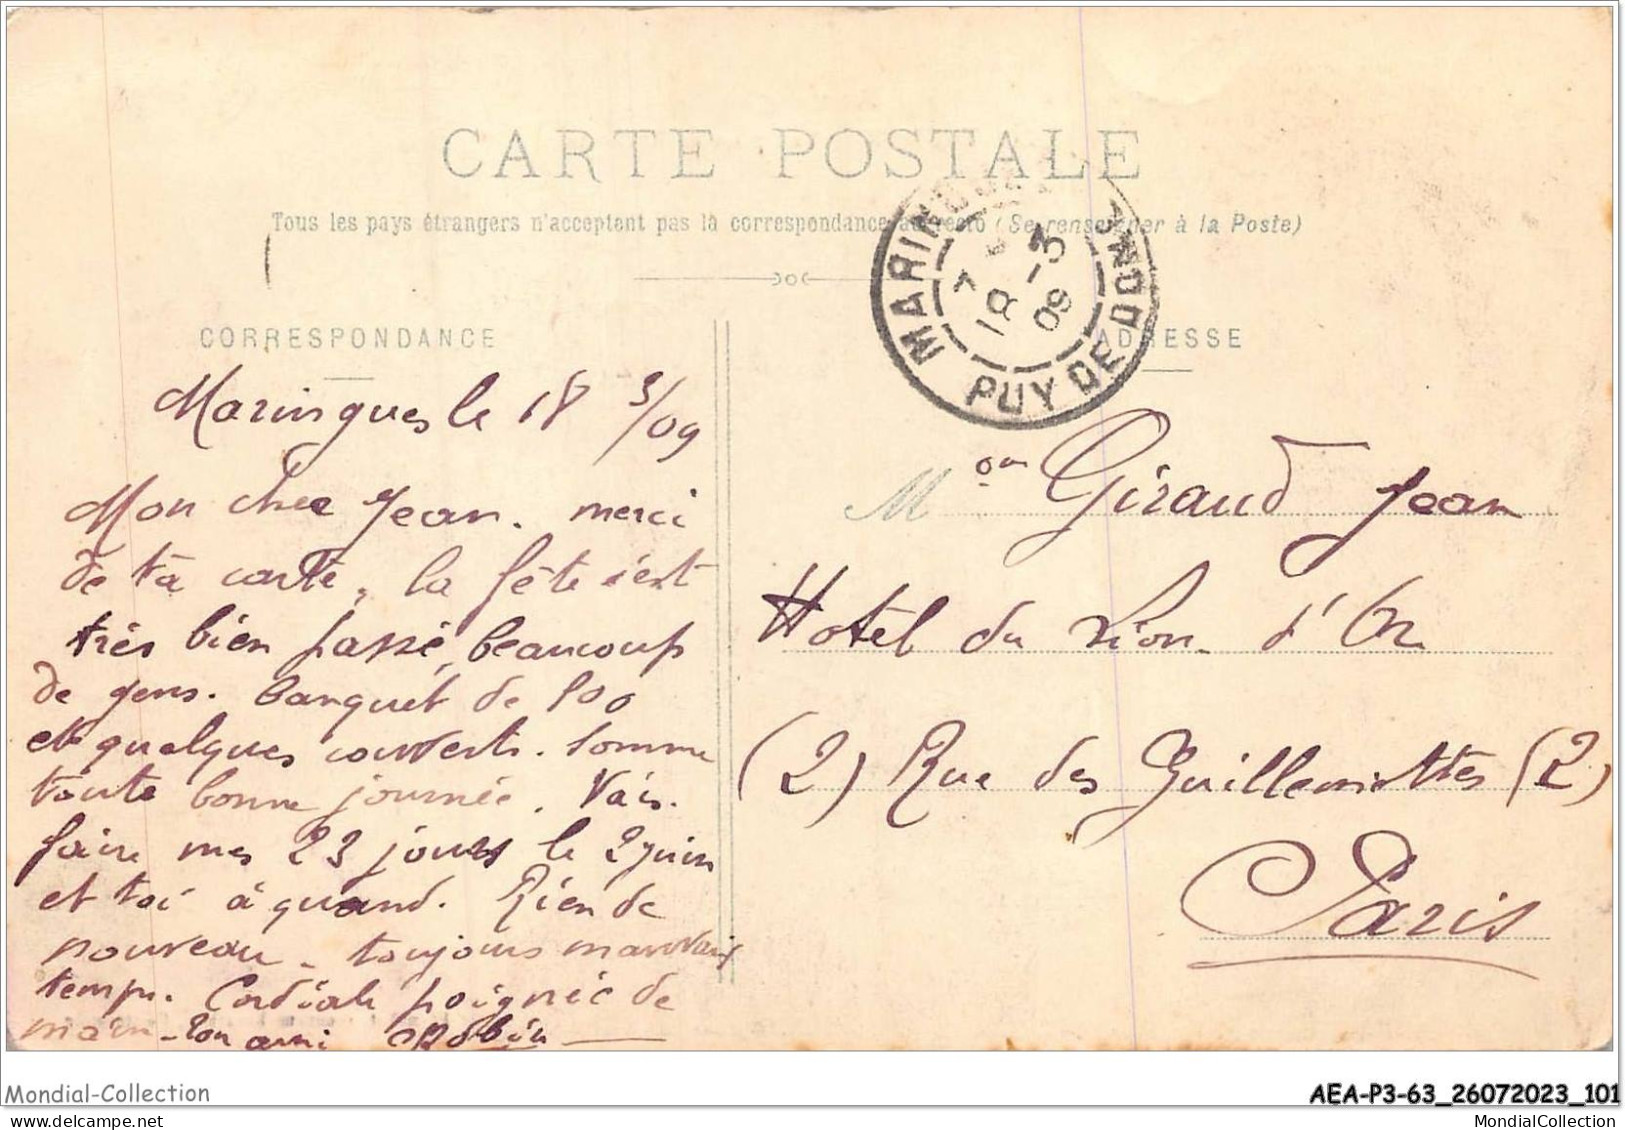 CARTE POSTALE
Tous les pays étrangers n'acceptent pas la correspondance au recto (Se renseigner à la Poste)
MARINGUES PUY DE DOME
7
18 - 3
09
CORRESPONDANCE
ADRESSE
Maringues le 18 3/09
Mon cher Jean. merci
de ta carte, la fête s'est
très bien passé, beaucoup
de gens. Banquet de 100
et quelques couverts. Somme
toute bonne journée. Vais
faire mes 23 jours le 2 juin
et toi à quand. Rien de
nouveau - toujours mauvais
temps. Cordiale poignée de
main - Ton ami Robin
Mon Giraud Jean
Hotel du Lion d'Or
(2) Rue des Guillemittes (2)
Paris
Mondial-Collection
AEA-P3-63_26072023_101
MondialCollection